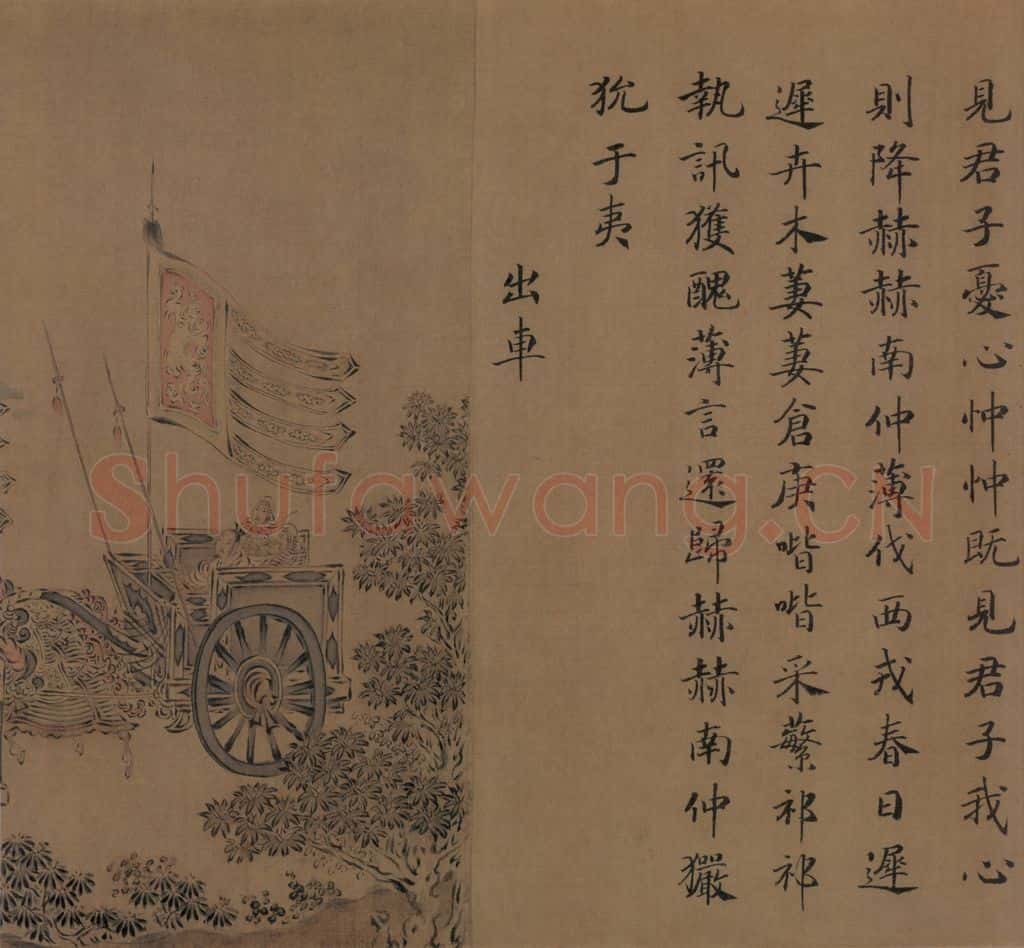 見君子憂心忡忡既見君子我心
則降赫赫南仲薄伐西戎春日遲
遲卉木萋萋倉庚喈喈采蘩祁祁
執訊獲醜薄言還歸赫赫南仲玁
狁于夷
出車
Shufawang.CN